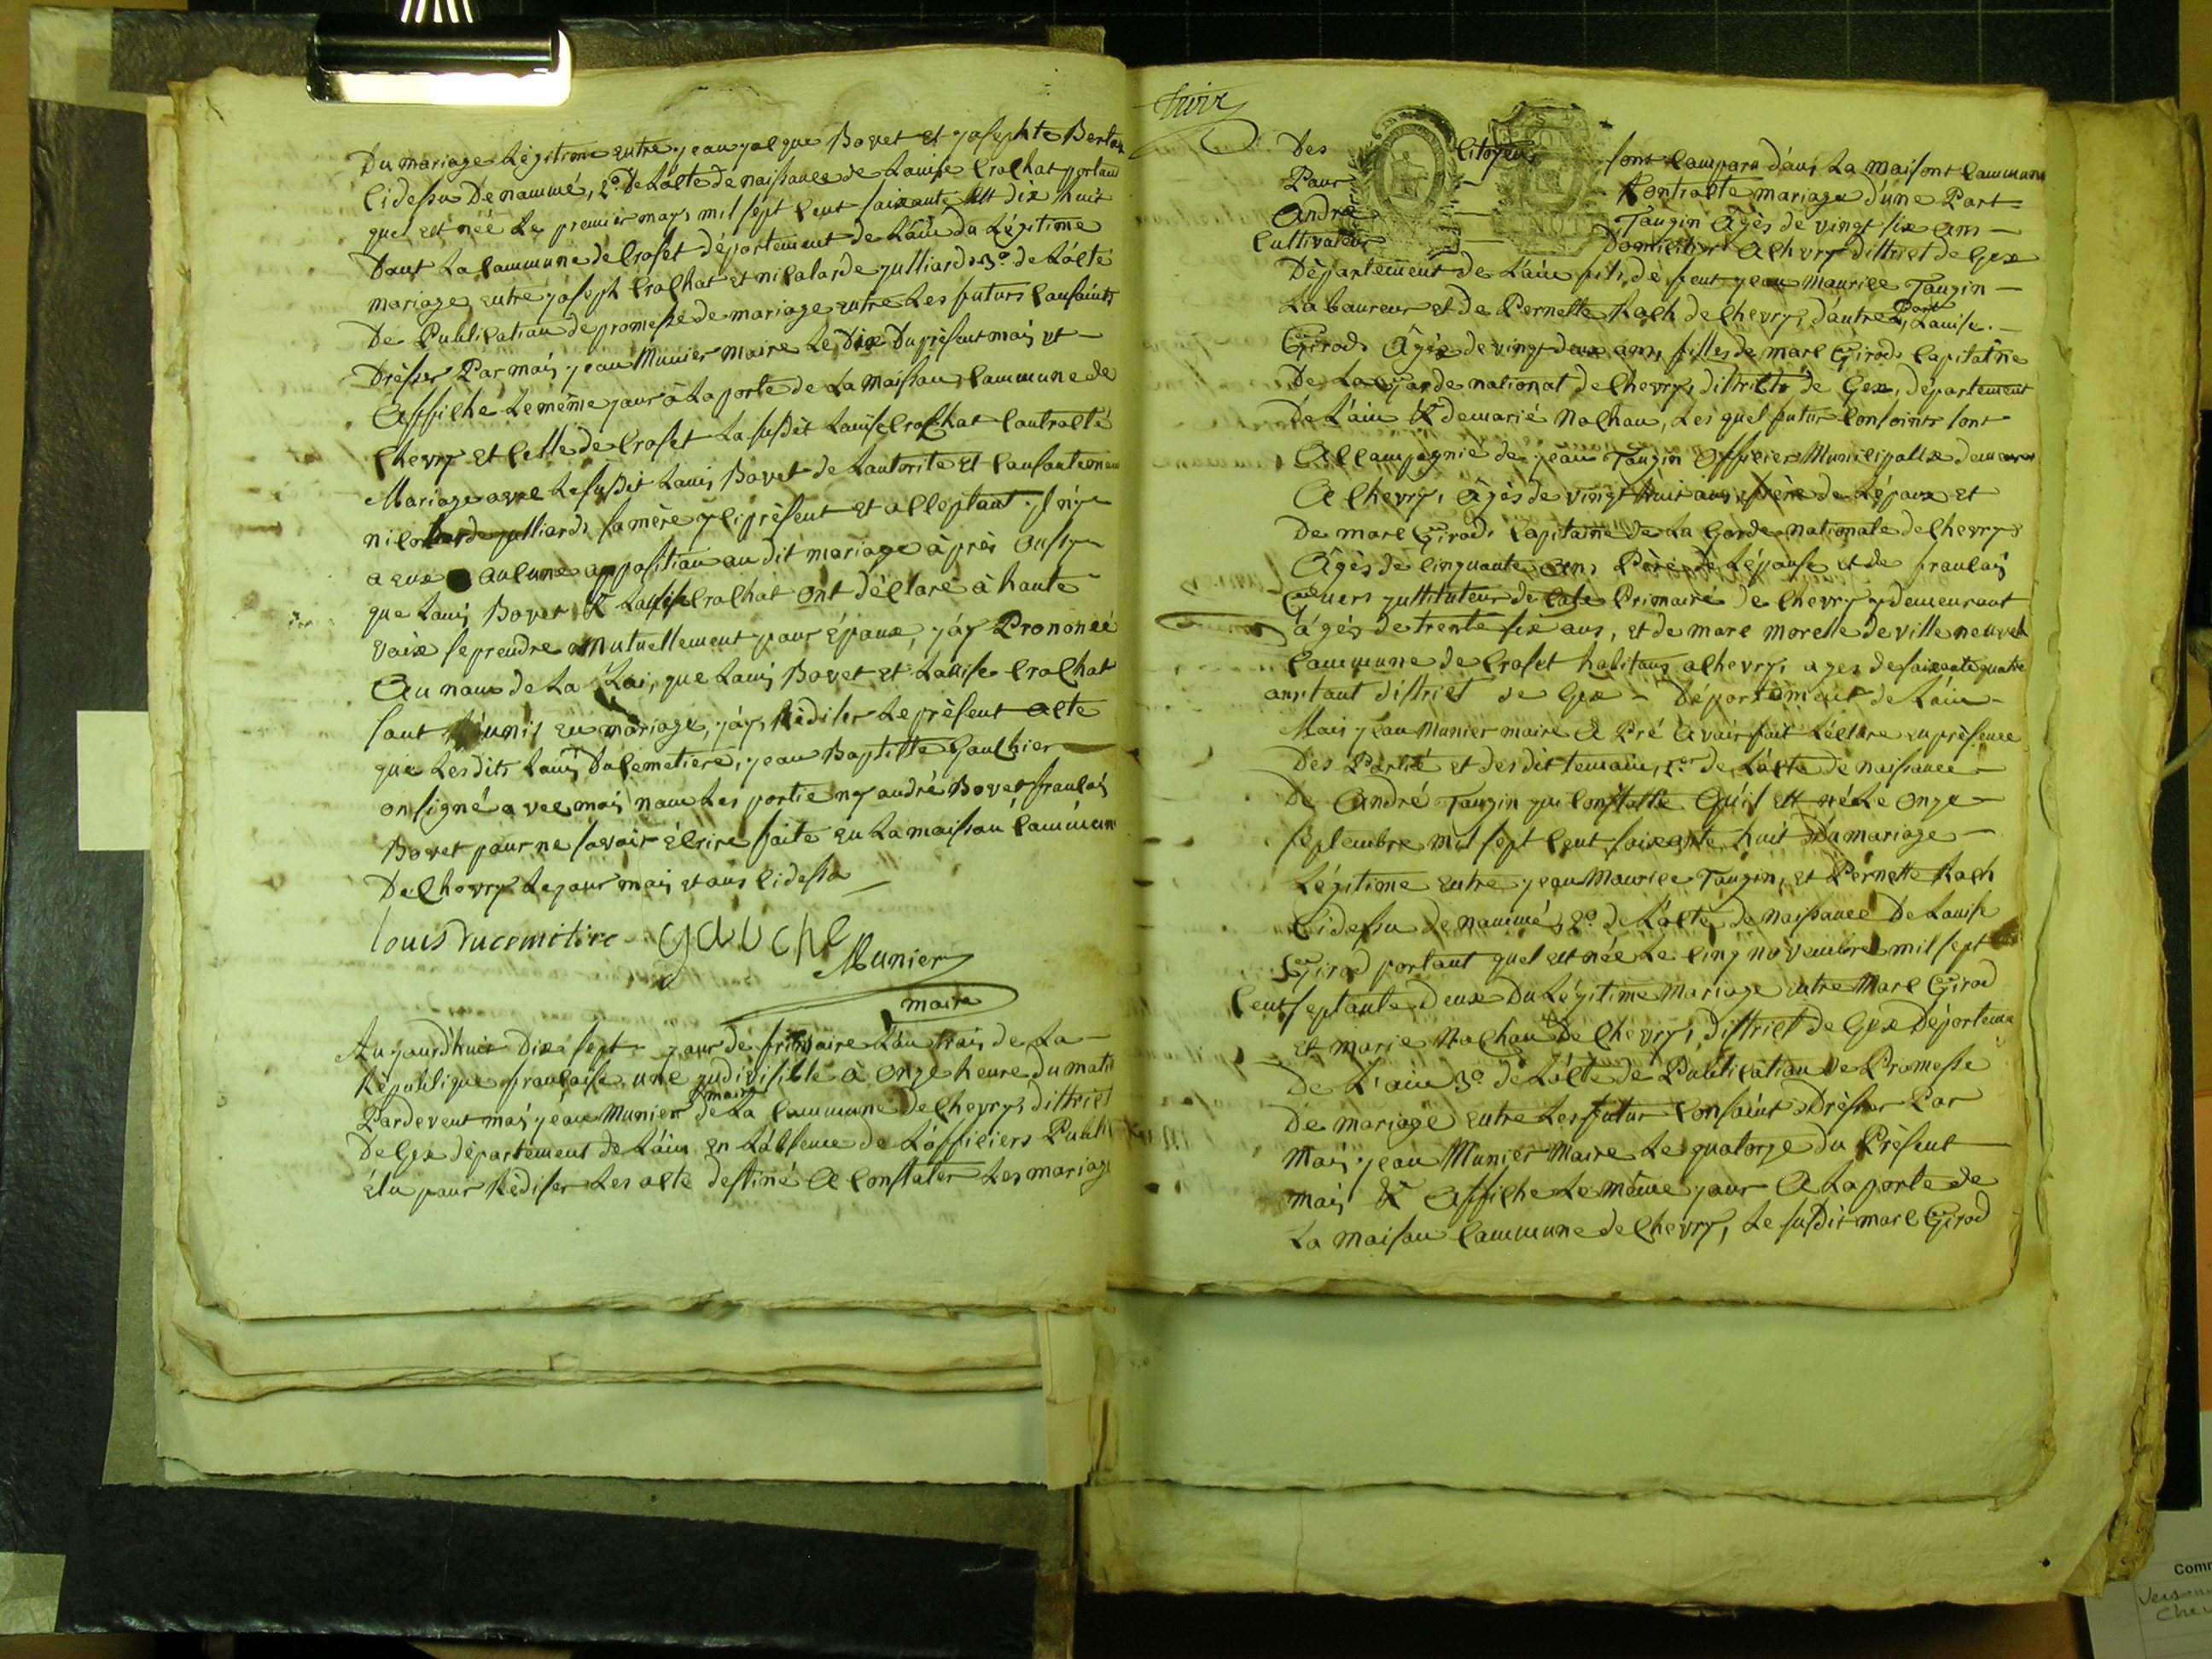 Du mariage Légitime entre jean jacque Bovet et josephte Berta
Cidessu Denammé, 2º De Lacte de naissance de Louise Crochat portant
quel est née Le premier mays mil sept cent soixante et dix huit
Dant La Commune de Croset département de Láin du Légitime
mariage entre joseph Crochat et nicolarde julliard 3º. de Lácte
De Publication de promesse de mariage entre Les futurs Consoints
Drésser Par mois jean Munier maire Le Dix Du présent mois et
Affiche Lemême jour à La porte de La maison Commune de
Chevry et Celle de Croset La susdit Louise Crochat Contracté
Mariage avec Le susdit Louis Bovet de Lautorité et Consantemen
nicolarde julliard sa mère y ci présent et acceptant. Sny
a eux aucune opposition au dit mariage àprès Ausy
que Louis Bovet & Louise Crochat ont déclaré à haute
voix se prendre Mutuellement pour Epoux, jáy Prononcé
Au nom de La Loi, que Louis Bovet et Louise Crochat
sont unis en mariage, jáy Rédiser Le présent acte
que Lesdits Louis Ducemetiere, jean Baptiste Gauchier
on signé avec mois nom Les portie ny andré Bovet francois
Bovet pour ne savoir écrire faite en La maison Commun
De Chevry Le jour mois et ans cidessu
Louis Ducemetire gauche
Munier
maire
Aujourdhuit Dix sept jour de frimaire Lan trois de La
République francaise une yndivisible à onze heure du mati
Pardevent mois jean Munier maire de La Commune De Chevry, district
De Gex département de Láin en Lábsence de Lófficiers Public
élu pour Rédiser Les acte destiné A Constater Les mariage
Des Citoyens sont Comparu dans La maisont Commune
Pour Contracte mariage dúne Part
André Tangin Agés de vingt six ans
Cultivateur Domicilier A Chevry district de Gex
Département de Láin fils de feut jean Maurice Tangin
Laboureur et de Pernette Roch de Chevry, d'autre Part Louise.
Girod Âgée de vingt deux ans, filles de marc Girod Capitaine
De La garde nationat de Chevry, district de Gex, département
De Láin & de marié Nachon, Les quel futur Consoints sont
A Compagnie de jean Tangin Officier Municipalle demeuren
A Chevry, Âgés de vingt huit ans, frère de Lépoux et
De marc Girod Capitaine de La Garde nationale de Chevry
Âgès de Cinquante ans, Père de Lépouse et de francois
yustituteur de Primaire de Chevry y demeurant
ágés de trente six ans, et de marc morelle de ville neuvel
Commune de Croset habitans achevry, ages de soixante quatre
ans tout district de Gex - Département de Láin -
Mois jean Munier maire A Pré Avoir fait Lécture en présence
Des Partié et des dit temoin, 1er de Lácte de naissance
De André Tangin qui Constatte Quil est née Le onze
Septembre mil sept Cent soixante huit Du mariage
Légitime entre jean Maurice Tangin, et Pernette Roch
Cidessu denommé, 2º. de Lácte de naissance De Louise
Girod portant quel est née Le Cinq novembre mil sept
Cent septante Deux Du Légitime Mariage entre Marc Girod
et marie Nachon De Chevry, district de Gex Déporteme
De L'ain 3º. de Lácte de Publication De Promesse
De mariage entre Les futur Consoint Drésser Par
Mois jean Munier Maire Le quatorze du Présent
mois & Affiche Le même jour A La porte de
La maison Commune de Chevry, Le susdit marc Girod
Comm
Chev